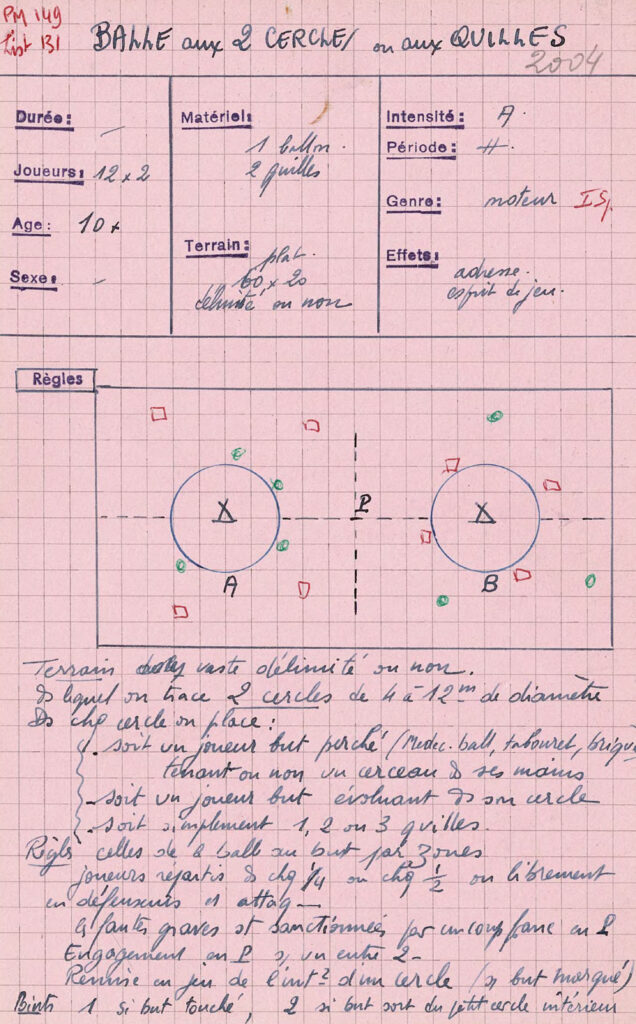 PM 149
List 131
BALLE aux 2 CERCLES ou aux QUILLES
2004
Durée: —
Joueurs: 12 x 2
Age: 10 +
Sexe: -
Matériel:
1 ballon.
2 quilles
Terrain: plat.
60 x 20
délimité ou non
Intensité: A.
Période: #.
Genre: moteur IS/
Effets:
adresse.
esprit de jeu.
Règles
P
A
B
Terrain vaste délimité ou non.
Ds lequel on trace 2 cercles de 4 à 12m de diamètre
Ds chq cercle on place:
- soit un joueur but perché (Medec. ball, tabouret, brique
tenant ou non un cerceau ds ses mains
- soit un joueur but évoluant ds son cercle
- soit simplement 1, 2 ou 3 quilles.
Règle celles de ball au but par zones
joueurs répartis ds chq 1/4 ou chq 1/2 ou librement
en défenseurs et attaq—
fautes graves st sanctionnées par un coup franc en P
Engagement en P s/ un entre 2-
Remise en jeu de l'int? d'un cercle (si but marqué)
Points 1 si but touché, 2 si but sort du petit cercle intérieur